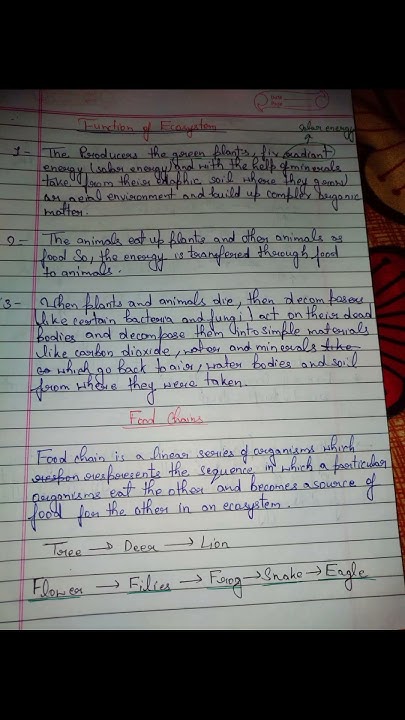 Function of Ecosystem
solar energy
1- The Producers the green plants, fix (radiant)
energy (solar energy) and with the help of minerals
take from their edaphic soil where they grow
an aerial environment and build up complex organic
matter.
2- The animals eat up plants and other animals as
food So, the energy is transfered through food
to animals.
3- When plants and animals die, then decomposers
like certain bacteria and fungi act on their dead
bodies and decompose them into simple materials
like carbon dioxide, water and minerals
which go back to air, water bodies and soil
from where they were taken.
Food Chains
Food chain is a linear series of organisms which
represents the sequence in which a particular
organisms eat the other and becomes a source of
food for the other in an ecosystem.
Tree → Deer → Lion
Flower → Filies → Frog → Snake → Eagle